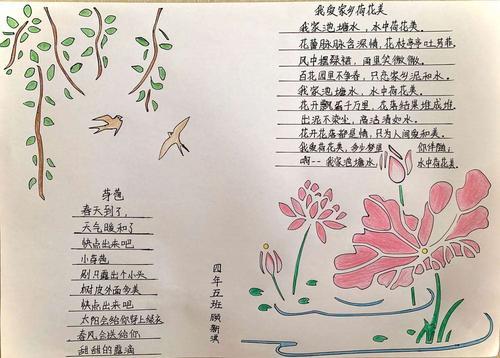 我爱家乡荷花美
我家池塘水，水中荷花美。
花蕾脉脉含深情，花枝亭亭吐芳菲。
风中摆绿裙，雨里笑微微。
百花园里不争春，只恋家乡泥和水。
我家池塘水，水中荷花美。
花开飘香千万里，花落结果堆成堆。
出泥不染尘，高洁清如水。
花开花落都是情，只为人间爱和美。
我爱荷花美，多少梦里 你伴随；
啊——我家池塘水， 水中荷花美。
芽苞
春天到了，
天气暖和了
快点出来吧
小芽苞
别只露出个小头
树皮外面多美
快点出来吧
太阳会给你穿上绿衣
春风会送给你
甜甜的露滴
四年五班 顾新淇